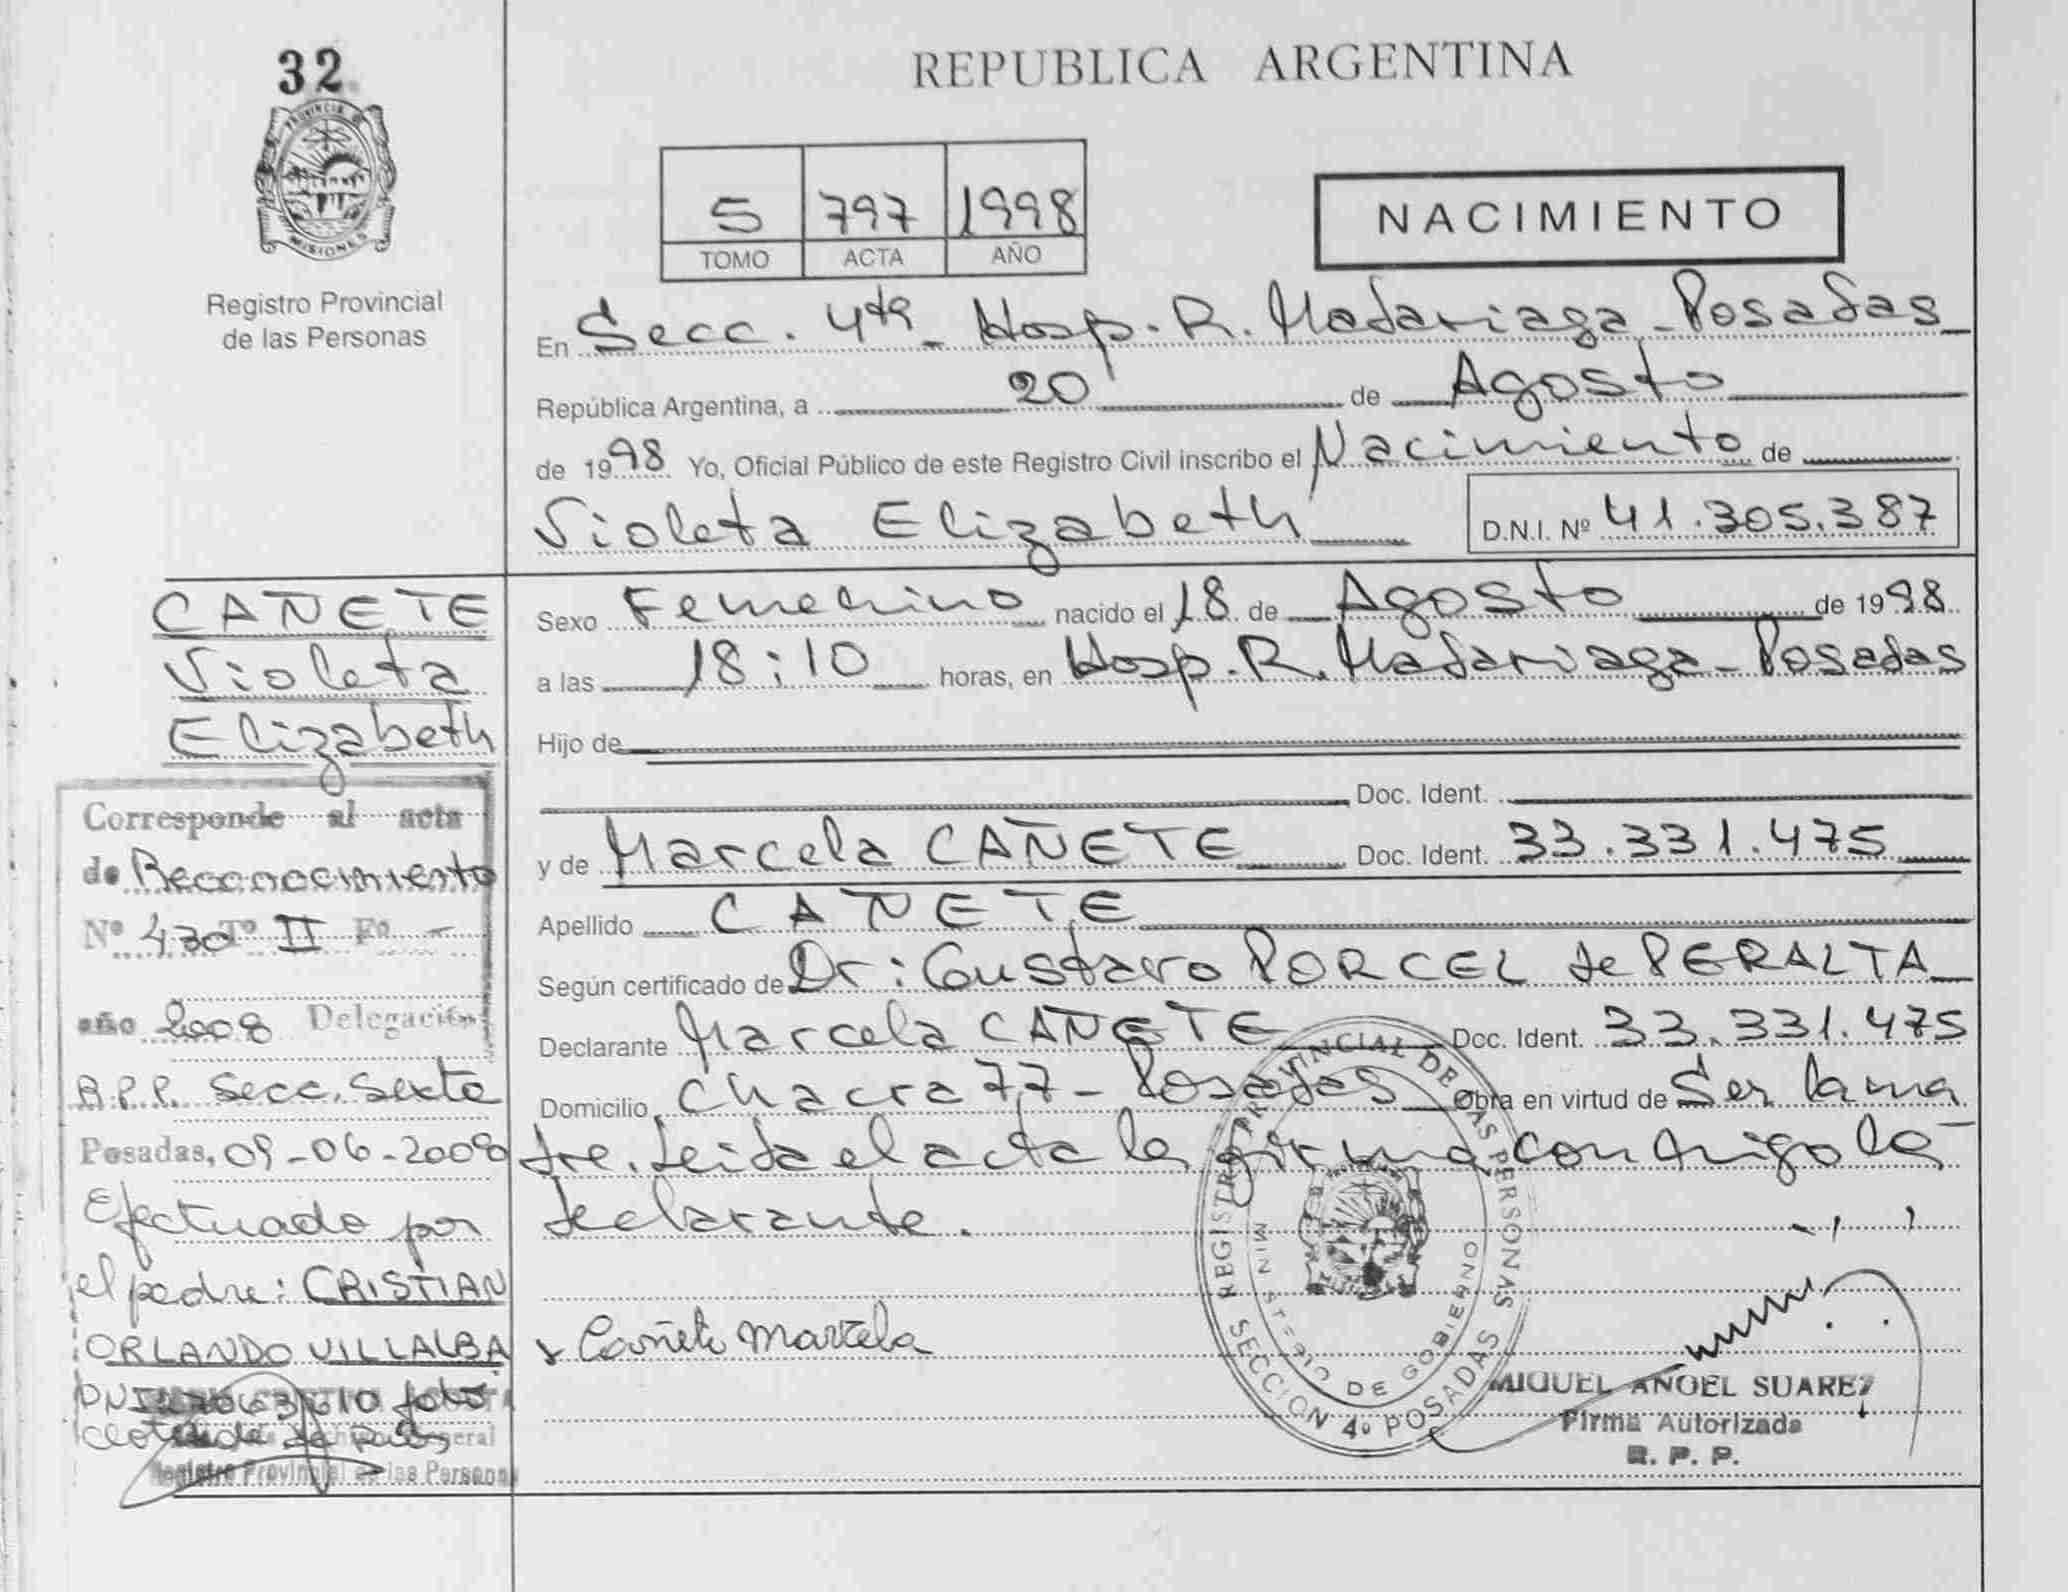 32
PROVINCIA DE
MISIONES
Registro Provincial
de las Personas
REPUBLICA ARGENTINA
5 797 1998
TOMO ACTA AÑO
NACIMIENTO
En Secc. 4ta - Hosp. R. Madariaga - Posadas
República Argentina, a 20 de Agosto
de 1998 Yo, Oficial Público de este Registro Civil inscribo el Nacimiento de
Violeta Elizabeth D.N.I. Nº 41.305.387
CAÑETE
Violeta
Elizabeth
Sexo Femenino nacido el 18 de Agosto de 1998
a las 18:10 horas, en Hosp. R. Madariaga - Posadas
Hijo de
Doc. Ident.
y de Marcela CAÑETE Doc. Ident. 33.331.475
Apellido CAÑETE
Según certificado de Dr: Gustavo PORCEL de PERALTA
Declarante Marcela CAÑETE Doc. Ident. 33.331.475
Domicilio Chacra 77 - Posadas Obra en virtud de Ser la ma
dre. Leida el acta la firma conmigo la
declarante.
Cañete Marcela
REGISTRO PROVINCIAL DE LAS PERSONAS
SECCION 4º POSADAS
MINISTERIO DE GOBIERNO
MIGUEL ANGEL SUAREZ
Firma Autorizada
R. P. P.
Corresponde al acta
de Reconocimiento
Nº 430 Tº II Fº -
año 2008 Delegación
R.P.P. Secc. Sexta
Posadas, 09-06-2008
Efectuado por
el padre: CRISTIAN
ORLANDO VILLALBA
DNI
Registro Provincial de las Personas